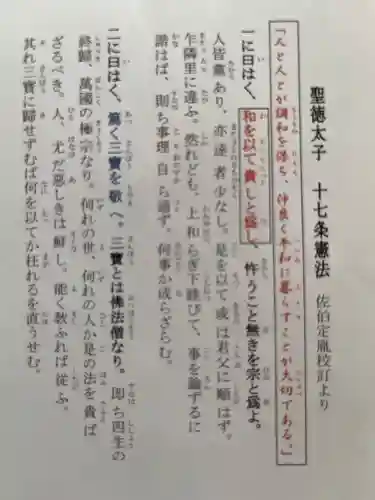 聖徳太子 十七条憲法 佐伯定胤校訂より
「人と人とが調和を保ち、仲良く平和に暮らすことが大切である。」
一に曰はく、和を以て貴しと爲し、忤うこと無きを宗と爲よ。
人皆黨あり、亦達る者少なし。是を以て或は君父に順はず。
乍隣里に違ふ。然れども、上和らぎ下睦びて、事を論ずるに
諧はば、則ち事理自ら通ず。何事か成らざらむ。
二に曰はく、篤く三寶を敬へ。三寶とは佛法僧なり。即ち四生の
終歸、萬國の極宗なり。何れの世、何れの人か是の法を貴ば
ざるべき。人、尤だ惡しきは鮮し。能く敎ふれば從ふ。
其れ三寶に歸せずむば何を以てか枉れるを直うせむ。